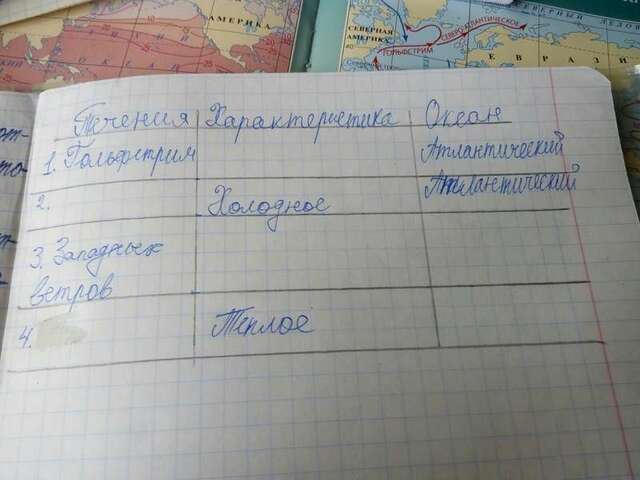 АМЕРИКА
СЕВЕРНАЯ
АМЕРИКА
СЕВЕРОАТЛАНТИЧЕСКОЕ
ГОЛЬФСТРИМ
ЕВРАЗИ
Течения Характеристика Океан
1. Гольфстрим Атлантический
2. Холодное Атлантический
3. Западных
ветров
4. Теплое